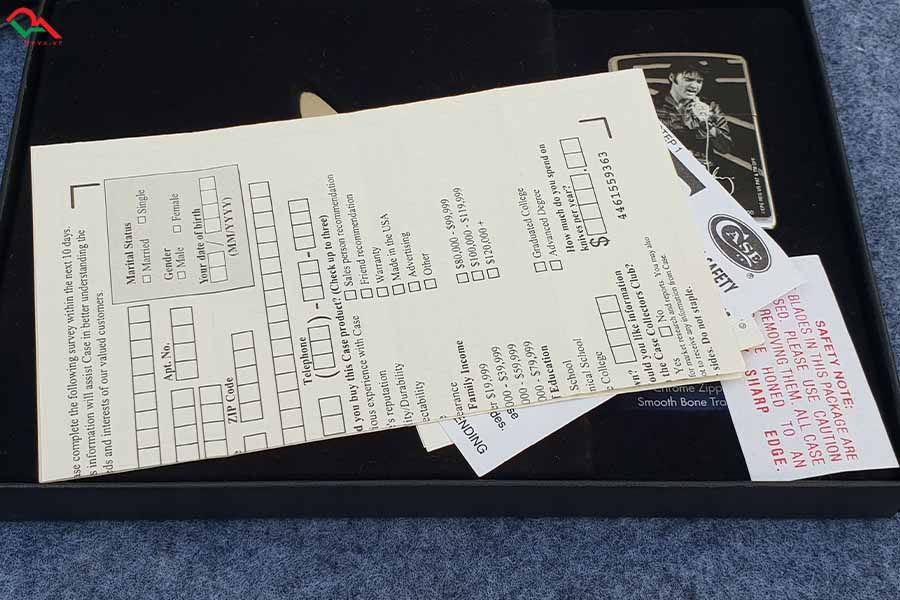 se complete the following survey within the next 10 days.
s information will assist Case in better understanding the
ds and interests of our valued customers.
Marital Status
Married Single
Gender
Male Female
Your date of birth
(MM/YYYY)
Apt. No.
ZIP Code
Telephone
( ) - -
d you buy this Case product? (Check up to three)
ious experience with Case
's reputation
ity/Durability
ectability
earance
Sales person recommendation
Friend recommendation
Warranty
Made in the USA
Advertising
Other
Family Income
r $19,999
000 - $39,999
000 - $59,999
000 - $79,999
$80,000 - $99,999
$100,000 - $119,999
$120,000 +
Education
School
nical School
College
Graduated College
Advanced Degree
How much do you spend on
knives per year?
$
4461559363
w? like information
ould you like
the Case Collectors Club?
Yes No
for market research and reports. You may also
se to receive any information from Case.
sides. Do not staple.
STEP 1
CASE
®
SAFETY
ENDING
SAFETY NOTE:
BLADES IN THIS PACKAGE ARE
PLEASE USE CAUTION
REMOVING THEM. ALL CASE
HONED TO AN
SHARP EDGE.
Chrome Zipp
Smooth Bone Tra